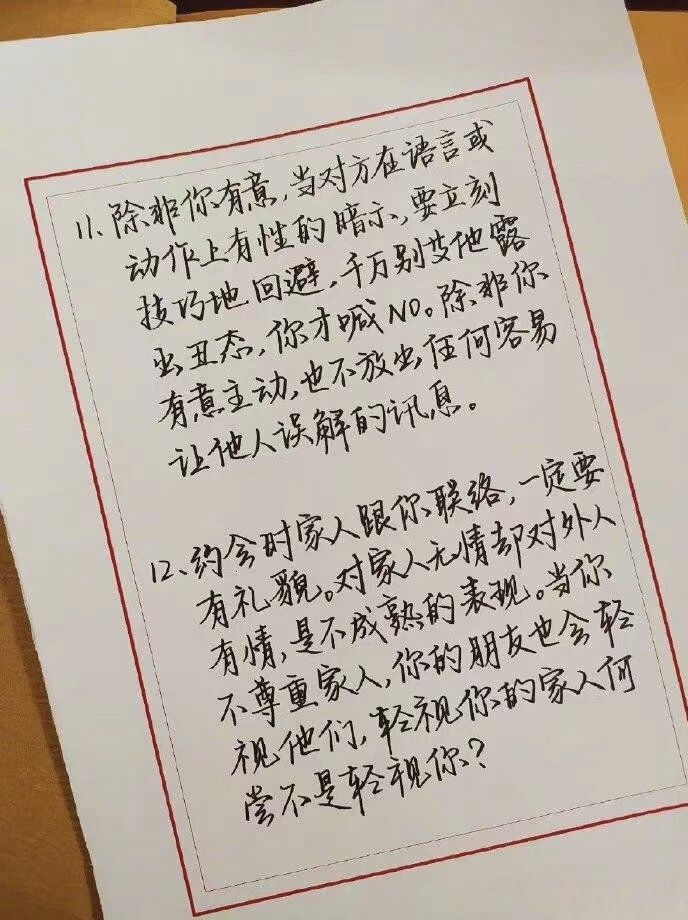 11、除非你有意,当对方在语言或
动作上有性的暗示,要立刻
技巧地回避,千万别等他露
出丑态,你才喊NO。除非你
有意主动,也不放出任何容易
让他人误解的讯息。
12、约会时家人跟你联络,一定要
有礼貌。对家人无情却对外人
有情,是不成熟的表现。当你
不尊重家人,你的朋友也会轻
视他们,轻视你的家人何
尝不是轻视你?